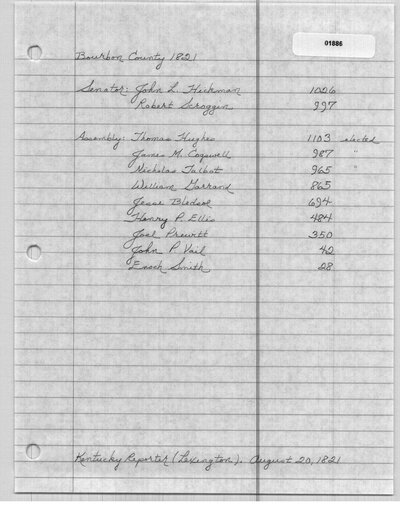 01886
Bourbon County 1821
Senator: John L. Hickman 1026
Robert Scroggin 997
Assembly: Thomas Hughes 1103 elected
James M. Cogswell 987 "
Nicholas Talbot 965 "
William Garrard 865
Jesse Bledsoe 694
Henry P. Ellis 484
Joel Prewitt 350
John P. Vail 42
Enoch Smith 28
Kentucky Reporter (Lexington). August 20, 1821